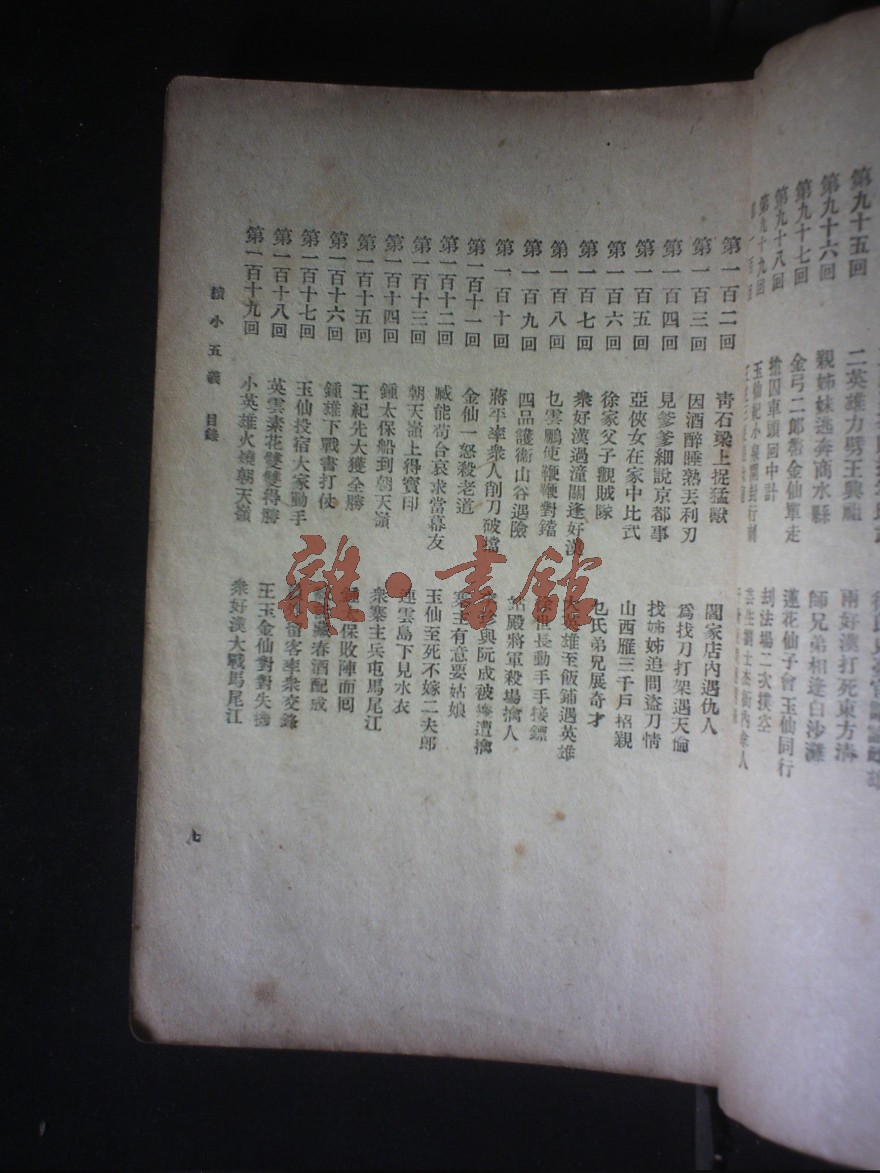 第九十五回 二英雄力劈王興祖
第九十六回 親姊妹逃奔商水縣 兩好漢打死東方清
第九十七回 金弓二郎帶金仙單走 師兄弟相逢白沙灘
第九十八回 搶囚車頭回中計 蓮花仙子會玉仙同行
第九十九回 玉仙紀小泉開封行刺 刦法場二次撲空
第一百二回 靑石梁上捉猛獸 閻家店內遇仇人
第一百三回 因酒醉睡熟丟利刃 爲找刀打架遇天倫
第一百四回 見爹爹細說京都事 找姊姊追問盜刀情
第一百五回 亞俠女在家中比武 山西雁三千戶招親
第一百六回 徐家父子觀賊隊 乜氏弟兄展奇才
第一百七回 衆好漢過潼關逢好漢 英雄至飯鋪遇英雄
第一百八回 乜雲鵬使鞭鞭對鐺 世長動手手接鏢
第一百九回 四品護衛山谷遇險 站殿將軍殺場擒人
第一百十回 蔣平率衆人削刀破擋 與阮成被擒遭擒
第一百十一回 金仙一怒殺老道 寨主有意要姑娘
第一百十二回 臧能苟合哀求當幕友 玉仙至死不嫁二夫郎
第一百十三回 朝天嶺上得寶印 連雲島下見水衣
第一百十四回 鍾太保船到朝天嶺 衆寨主兵屯馬尾江
第一百十五回 王紀先大獲全勝 鍾太保敗陣而回
第一百十六回 鍾雄下戰書打仗 藏春酒配成
第一百十七回 玉仙投宿大家動手 留客率衆交鋒
第一百十八回 英雲素花雙雙得勝 王玉金仙對對失機
第一百十九回 小英雄火燒朝天嶺 衆好漢大戰馬尾江
續小五義 目錄
七
雜·書館